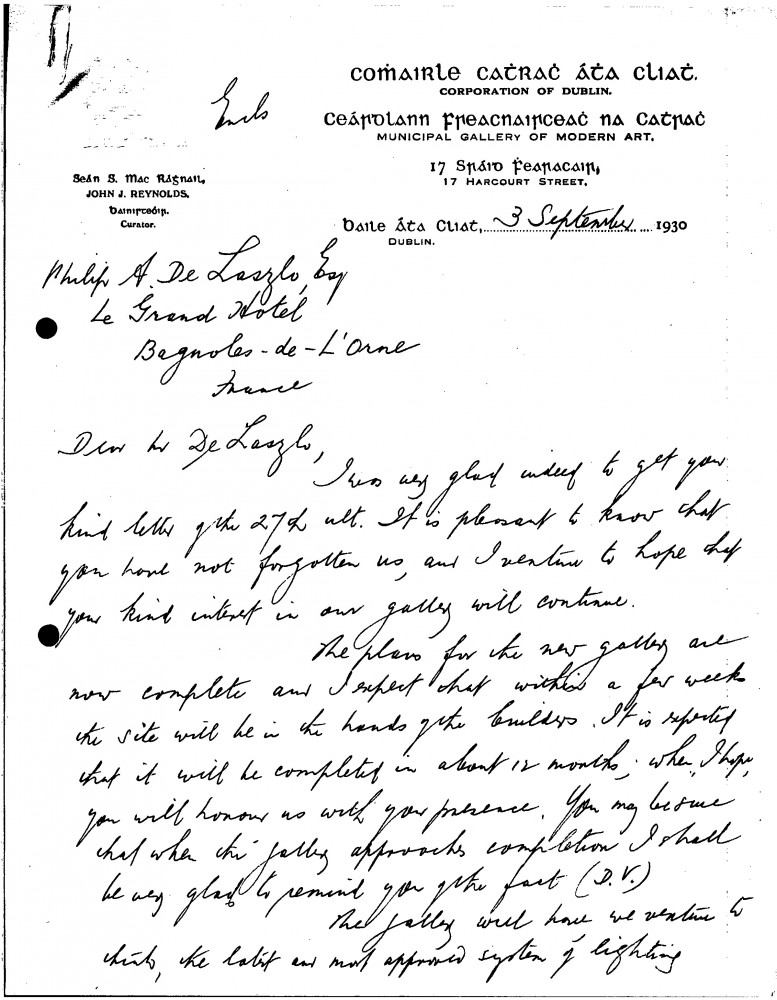 Encls
Comairle Catrac Áta Cliat.
CORPORATION OF DUBLIN.
Ceárdlann Freacnairceac na Catrac
MUNICIPAL GALLERY OF MODERN ART.
17 Sráid Fearacair,
17 HARCOURT STREET,
Seán S. Mac Rágnaill,
JOHN J. REYNOLDS,
Curator.
Baile Áta Cliat, 3 September 1930
DUBLIN.
Philip A. De Laszlo, Esq
Le Grand Hotel
Bagnoles-de-L'Orne
France
Dear Mr De Laszlo,
I was very glad indeed to get your
kind letter of the 27th ult. It is pleasant to know that
you have not forgotten us, and I venture to hope that
your kind interest in our gallery will continue.
The plans for the new gallery are
now complete and I expect that within a few weeks
the site will be in the hands of the builders. It is expected
that it will be completed in about 12 months; when, I hope,
you will honour us with your presence. You may be sure
that when the gallery approaches completion I shall
be very glad to remind you of the fact (D.V.)
The gallery will have we venture to
think, the latest and most approved system of lighting